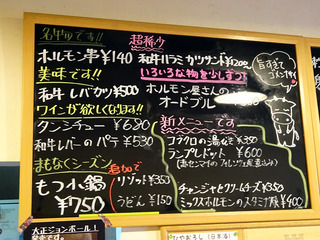 名物です!!
ホルモン串¥140
美味です!!
和牛レバカツ¥500
ワインが欲しくなります!!
タンシチュー ¥680
和牛レバーのパテ ¥530
まもなくシーズン
もつ小鍋
¥750
追加で
リゾット¥350
うどん¥150
超稀少
和牛ハラミカツサンド
いろいろな物を少しずつ!
ホルモン屋さんの
オードブル
旨すぎて
ゴメンナサイ
新メニューです
コブクロの湯引き ¥350
ランプレドット ¥600
チャンジャとクリームチーズ¥350
ミックスホルモンのスタミナ¥400
大正ジョンボール!
ひやおろし(日本酒)